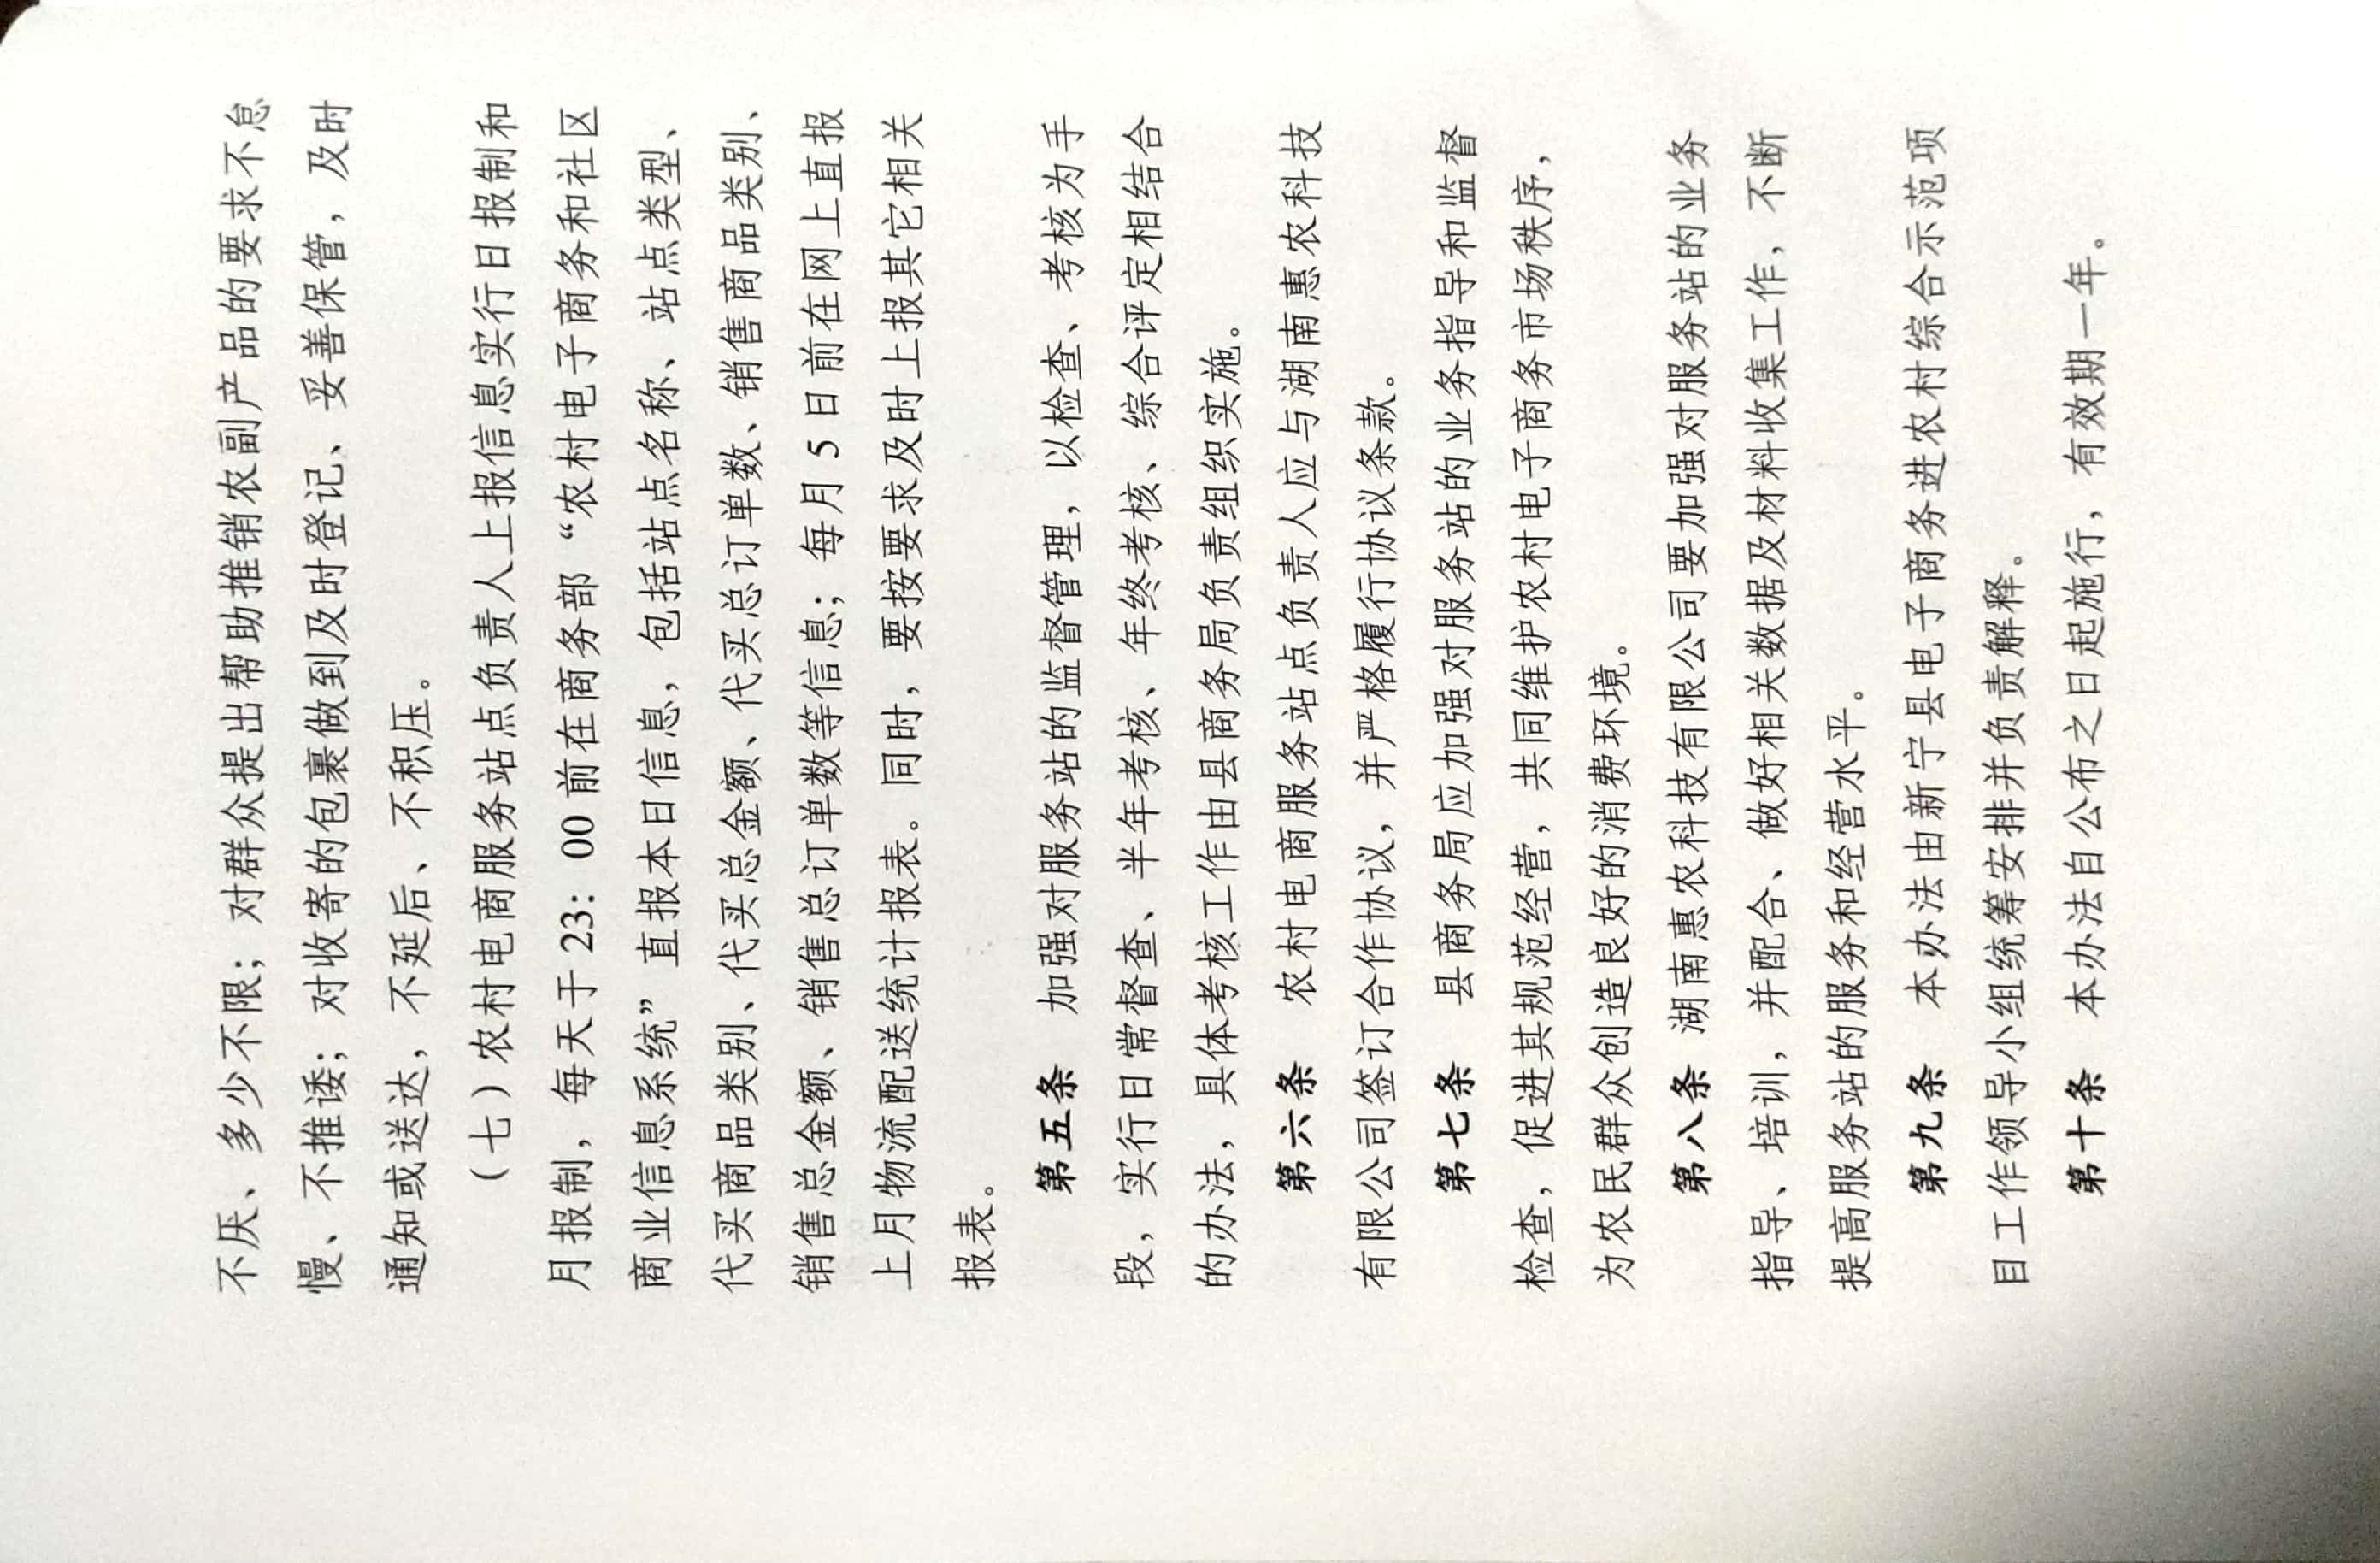 不厌、多少不限；对群众提出帮助推销农副产品的要求不怠
慢、不推诿；对收寄的包裹做到及时登记、妥善保管，及时
通知或送达，不延后、不积压。
（七）农村电商服务站点负责人上报信息实行日报制和
月报制，每天于 23：00 前在商务部“农村电子商务和社区
商业信息系统”直报本日信息，包括站点名称、站点类型、
代买商品类别、代买总金额、代买总订单数、销售商品类别、
销售总金额、销售总订单数等信息；每月 5 日前在网上直报
上月物流配送统计报表。同时，要按要求及时上报其它相关
报表。
第五条 加强对服务站的监督管理，以检查、考核为手
段，实行日常督查、半年考核、年终考核、综合评定相结合
的办法，具体考核工作由县商务局负责组织实施。
第六条 农村电商服务站点负责人应与湖南惠农科技
有限公司签订合作协议，并严格履行协议条款。
第七条 县商务局应加强对服务站的业务指导和监督
检查，促进其规范经营，共同维护农村电子商务市场秩序，
为农民群众创造良好的消费环境。
第八条 湖南惠农科技有限公司要加强对服务站的业务
指导、培训，并配合、做好相关数据及材料收集工作，不断
提高服务站的服务和经营水平。
第九条 本办法由新宁县电子商务进农村综合示范项
目工作领导小组统筹安排并负责解释。
第十条 本办法自公布之日起施行，有效期一年。